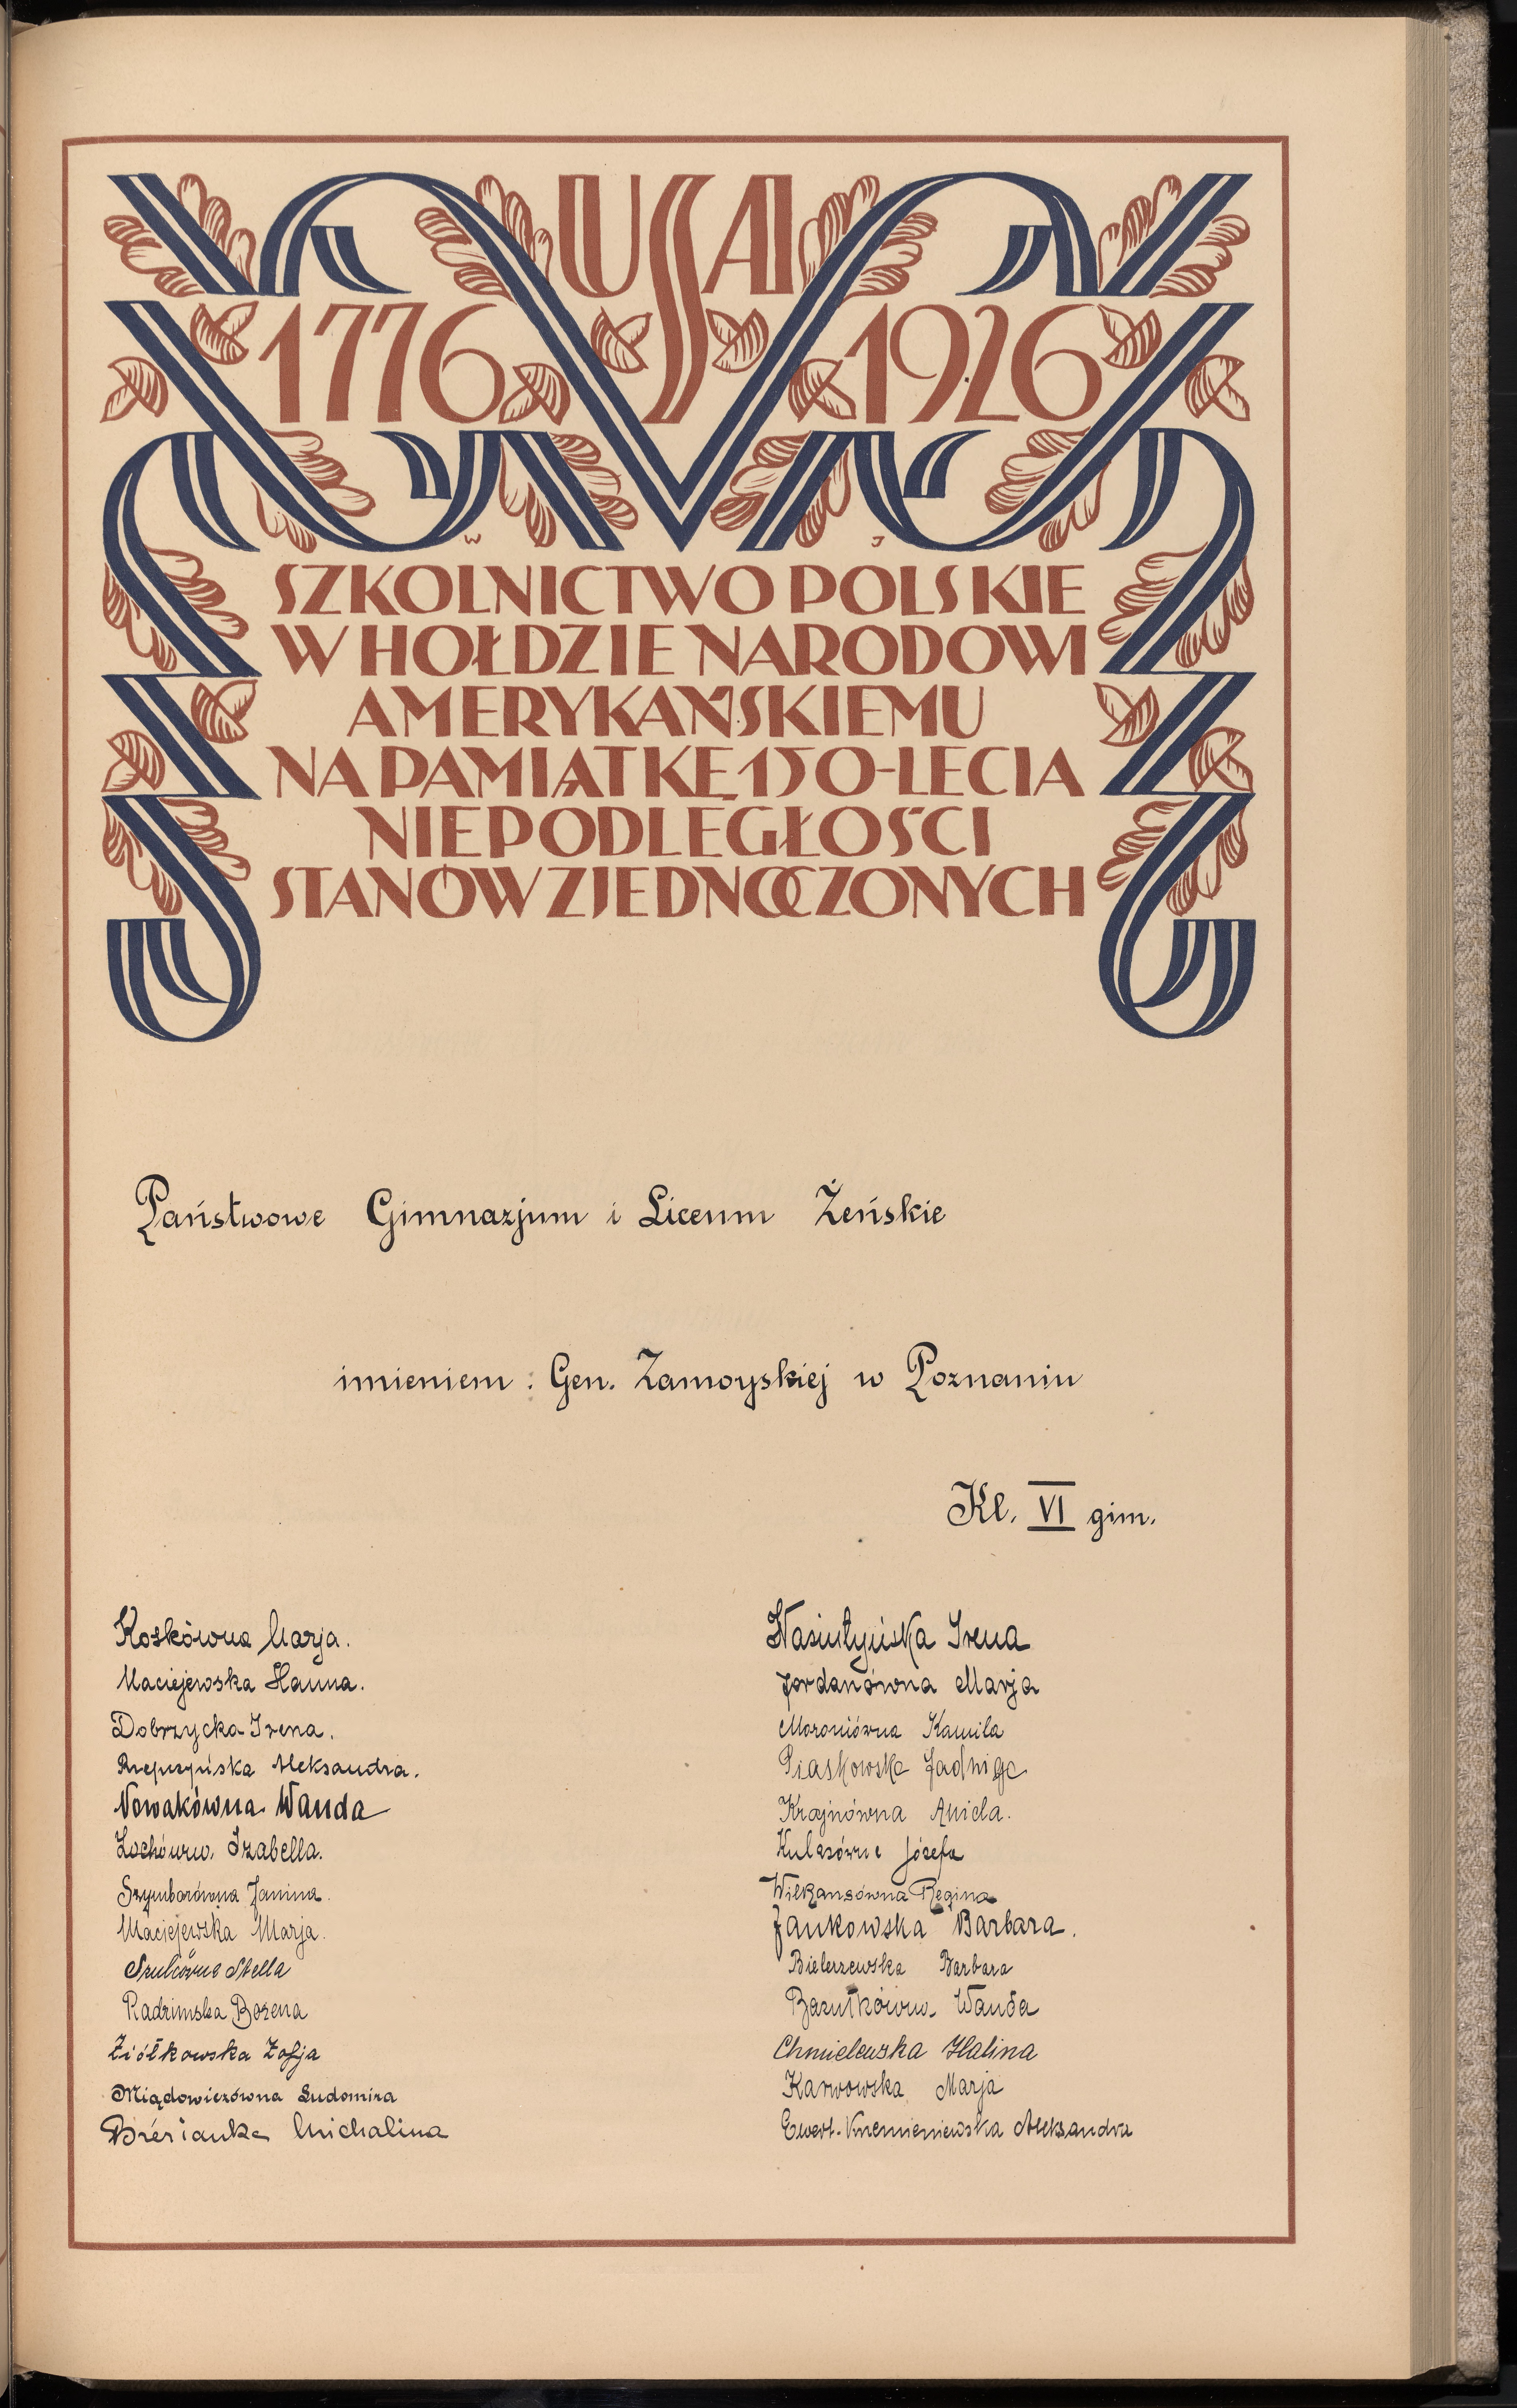 USA
1776 1926
W J
SZKOLNICTWO POLSKIE
W HOŁDZIE NARODOWI
AMERYKAŃSKIEMU
NA PAMIĄTKĘ 150-LECIA
NIEPODLEGŁOŚCI
STANÓW ZJEDNOCZONYCH
Państwowe Gimnazjum i Liceum Żeńskie
imieniem: Gen. Zamoyskiej w Poznaniu
Kl. VI gim.
Koskówna Marja.
Maciejewska Hanna.
Dobrzycka Irena.
Aleksandra.
Nowakówna Wanda
Izabella.
Szymborówna Janina.
Maciejewska Marja.
Szulcówna Stella
Radzimska Bożena
Ziółkowska Zofja
Miądowiczówna Ludomira
Michalina
Wasiutyńska Irena
Jordanówna Marja
Moroniówna Kamila
Piaskowska Jadwiga
Krajnówna Aniela.
Józefa
Wilkansówna Regina
Jankowska Barbara.
Bielerzewska Barbara
Wanda
Chmielewska Halina
Karwowska Marja
Ewert-Krzemieniewska Aleksandra